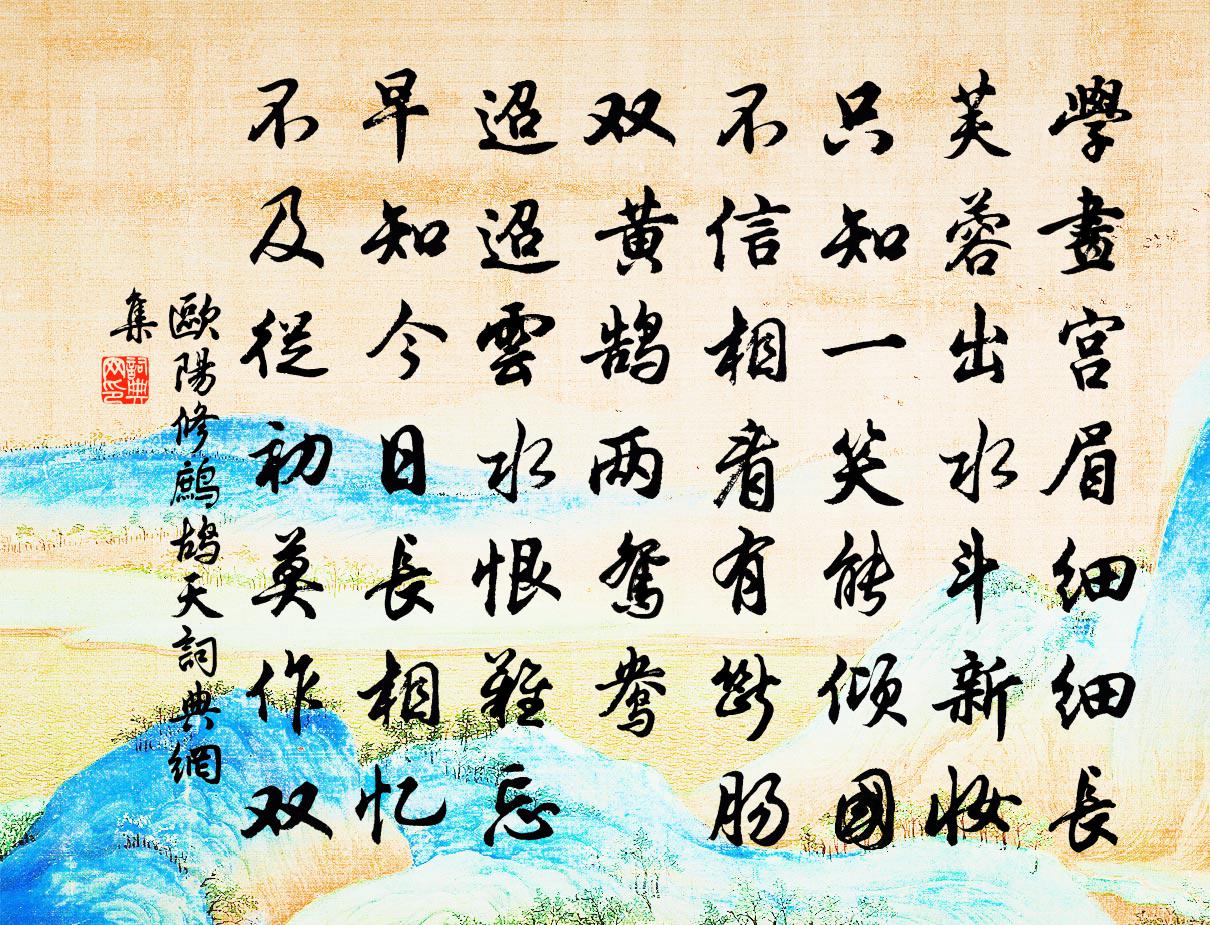 學畫宫眉細細長
芙蓉出水斗新妝
只知一笑能傾國
不信相看有斷腸
双黄鹄两鴛鴦
迢迢雲水恨難忘
早知今日長相忆
不及從初莫作双
歐陽修鷓鴣天詞典網
集
詞典网印